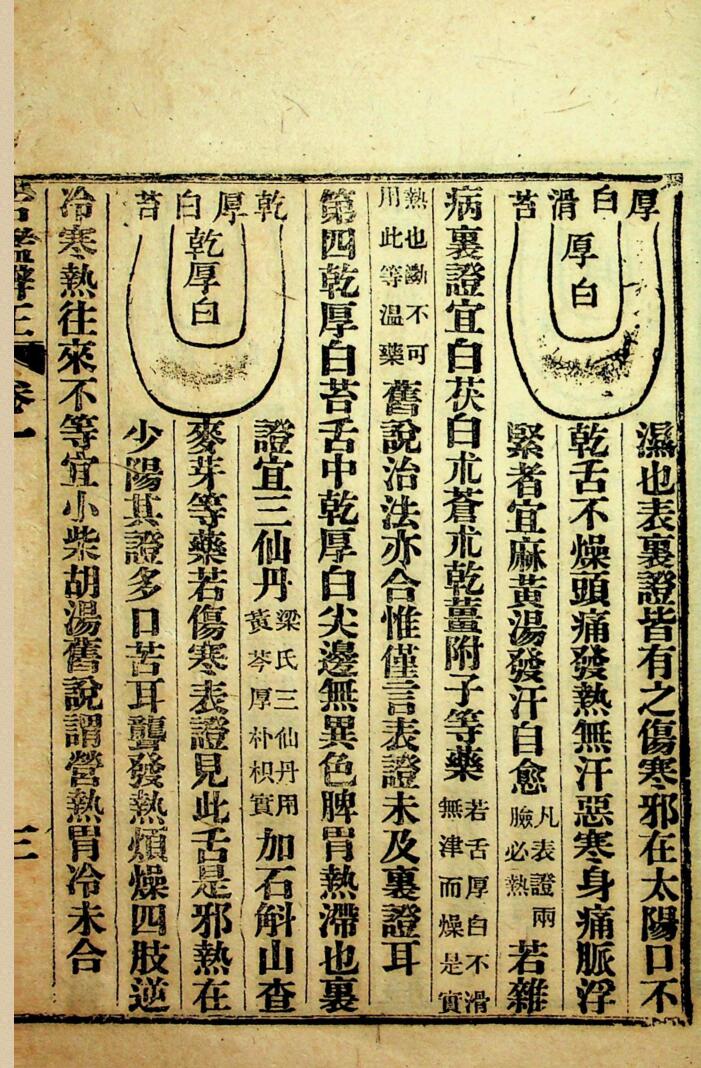 厚白滑苔
厚白
濕也表裏證皆有之傷寒邪在太陽口不
乾舌不燥頭痛發熱無汗惡寒身痛脈浮
緊者宜麻黃湯發汗自愈凡表證兩臉必熱若雜
病裏證宜白茯白朮蒼朮乾薑附子等藥若舌厚白不滑無津而燥是實
熱也勦不可用此等溫藥舊說治法亦合惟僅言表證未及裏證耳
第四乾厚白苔舌中乾厚白尖邊無異色脾胃熱滯也裏
乾厚白苔
乾厚白
證宜三仙丹梁氏三仙丹用黃芩厚朴枳實加石斛山查
麥芽等藥若傷寒表證見此舌是邪熱在
少陽其證多口苦耳聾發熱煩燥四肢逆
冷寒熱往來不等宜小柴胡湯舊說謂營熱胃冷未合
卷一
三